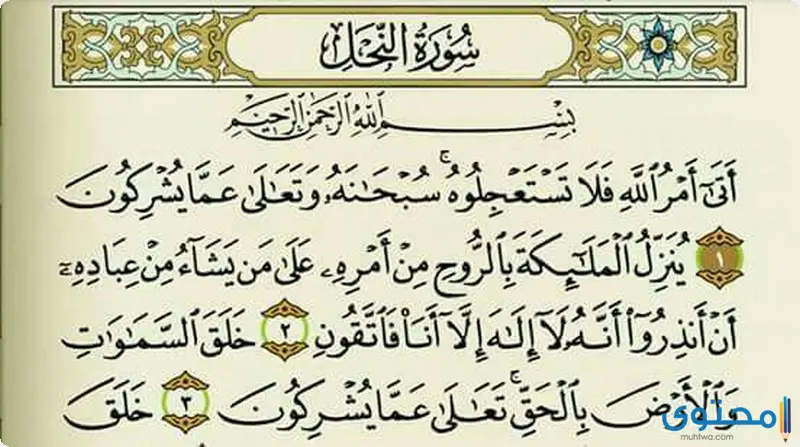 سُورَةُ النَّحْلِ
بِسْمِ اللَّهِ الرَّحْمَٰنِ الرَّحِيمِ
أَتَىٰٓ أَمْرُ ٱللَّهِ فَلَا تَسْتَعْجِلُوهُ ۚ سُبْحَٰنَهُۥ وَتَعَٰلَىٰ عَمَّا يُشْرِكُونَ
١ يُنَزِّلُ ٱلْمَلَٰٓئِكَةَ بِٱلرُّوحِ مِنْ أَمْرِهِۦ عَلَىٰ مَن يَشَآءُ مِنْ عِبَادِهِۦٓ
أَنْ أَنذِرُوٓا۟ أَنَّهُۥ لَآ إِلَٰهَ إِلَّآ أَنَا۠ فَٱتَّقُونِ ٢ خَلَقَ ٱلسَّمَٰوَٰتِ
وَٱلْأَرْضَ بِٱلْحَقِّ ۚ تَعَٰلَىٰ عَمَّا يُشْرِكُونَ ٣ خَلَقَ
محتوى
muhtwa.com